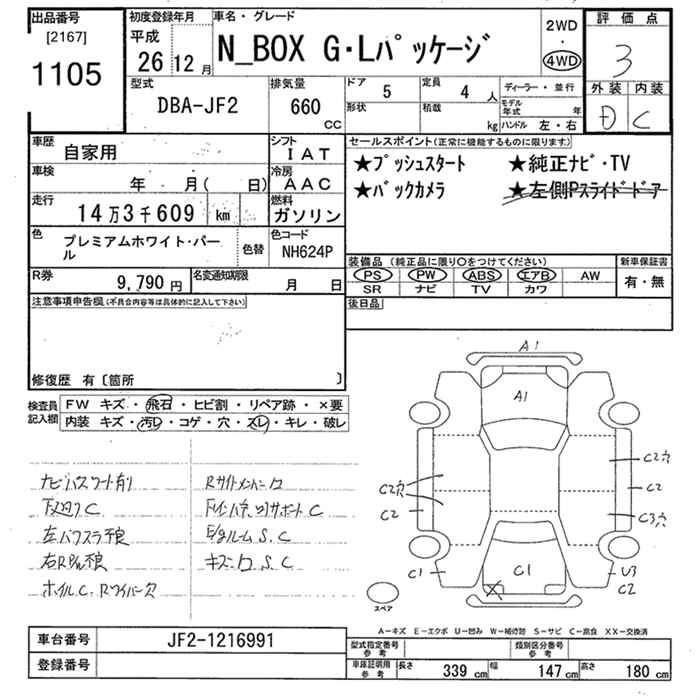 出品番号
[2167]
1105
初度登録年月
平成
26 12 月
車名・グレード
N_BOX G・Lパッケージ
2WD
・
4WD
評価点
3
外装 内装
D C
型式
DBA-JF2
排気量
660
cc
ドア
5
定員
4 人
形状
積載
kg
ディーラー・並行
モデル年式 年
ハンドル 左・右
車歴
自家用
シフト
IAT
車検
年 月( 日)
冷房
AAC
走行
14万3千609 km
燃料
ガソリン
色
プレミアムホワイト・パール
色替
色コード
NH624P
R券
9,790 円
名変通知期限
月 日
セールスポイント(正常に機能するものに限ります)
★プッシュスタート ★純正ナビ・TV
★バックカメラ ★左側Pスライドドア
装備品 (純正品に限り○をつけてください)
PS PW ABS エアB AW
SR ナビ TV カワ
新車保証書
有・無
後日品
注意事項申告欄(不具合内容等は具体的に記入して下さい)
修復歴 有〔箇所 〕
検査員記入欄
FW キズ・飛石・ヒビ割・リペア跡・×要
内装 キズ・汚レ・コゲ・穴・スレ・キレ・破レ
下スリクC
ホイルC. Rワイパー欠
S. C
A1
A1
C2穴
C2
C2穴
C2
C3穴
C1
C1
U3
C2
スペア
A－キズ E－エクボ U－凹み W－補修跡 S－サビ C－腐食 XX－交換済
車台番号
JF2-1216991
登録番号
型式指定番号
参考
類別区分番号
参考
車庫証明用
参考
長さ 339 cm 幅 147 cm 高さ 180 cm